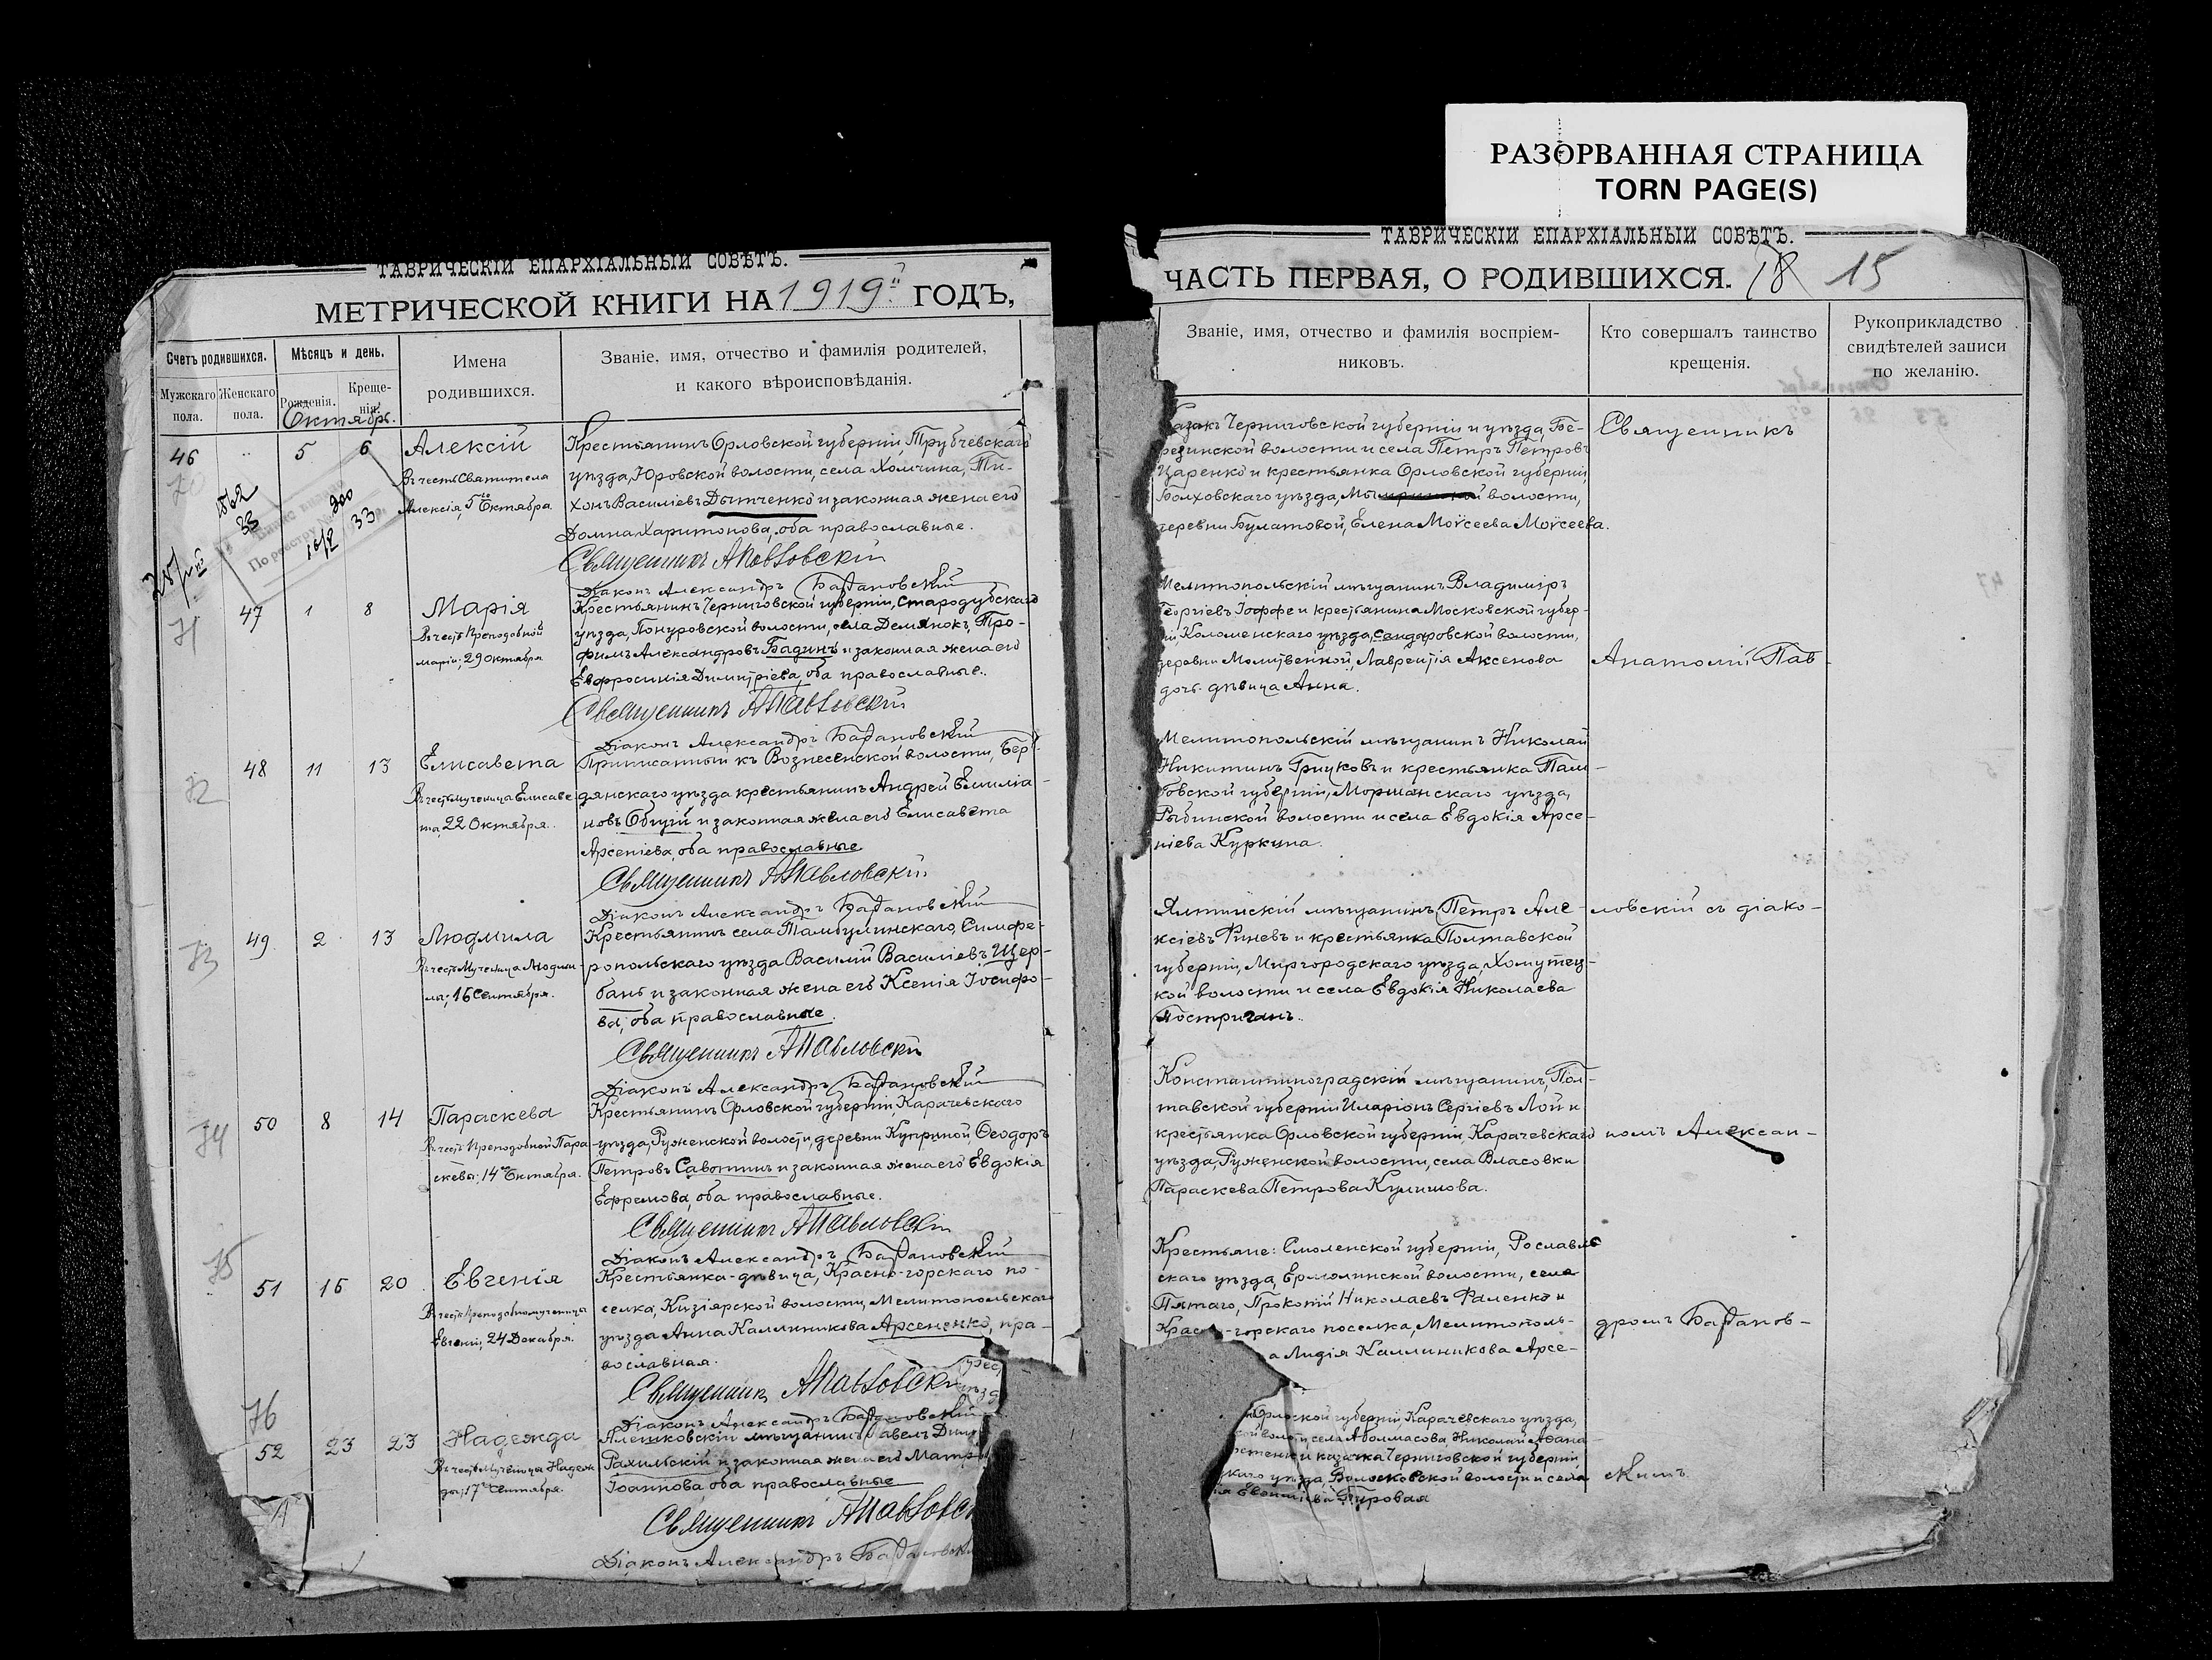 РАЗОРВАННАЯ СТРАНИЦА
TORN PAGE(S)
ТАВРИЧЕСКІЙ ЕПАРХІАЛЬНЫЙ СОВѢТЪ.
МЕТРИЧЕСКОЙ КНИГИ НА 1919й ГОДЪ,
Счетъ родившихся.
Мужскаго пола.
Женскаго пола.
Мѣсяцъ и день.
Рожденія.
Крещенія.
Имена
родившихся.
Званіе, имя, отчество и фамилія родителей,
и какого вѣроисповѣданія.
Октябрь.
46 5 6 Алексій
Въ честь Святителя
Алексія, 5го Октября
Крестьянинъ Орловской губерніи, Трубчевскаго
уѣзда, Юровской волости, села Холмина, Ти-
хонъ Василіевъ Дытченко и законная жена его
Домна Харитонова, оба православные.
Священникъ А Павловскій
Діаконъ Александръ Багдановскій
71 47 1 8 Марія
Въ честь Преподобной
Маріи; 29 Октября
Крестьянинъ Черниговской губерніи, Стародубскаго
уѣзда, Понуровской волости, села Демянокъ, Тро-
фимъ Александровъ Бадинъ и законная жена его
Евфросинія Димитріева, оба православные.
Священникъ А Павловскій
Діаконъ Александръ Багдановскій
72 48 11 13 Елисавета
Въ честь мученицы Елисаве
ты, 22 Октября.
Приписанный къ Вознесенской волости, Бер-
дянскаго уѣзда крестьянинъ Андрей Емиліа-
новъ Общій и законная жена его Елисавета
Арсеніева, оба православные
Священникъ А Павловскій
Діаконъ Александръ Багдановскій
73 49 2 13 Людмила
Въ честь Мученицы Людми
лы; 16 Сентября.
Крестьянинъ села Тамбулинскаго, Симфе-
ропольскаго уѣзда Василій Василіевъ Щер-
бань и законная жена его Ксенія Іосифо-
ва, оба православные.
Священникъ А Павловскій
Діаконъ Александръ Багдановскій
74 50 8 14 Параскева
Въ честь Преподобной Пара
скевы; 14го Октября.
Крестьянинъ Орловской губерніи, Карачевскаго
уѣзда, Руженской волости, деревни Куприной, Ѳеодоръ
Петровъ Савотинъ и законная жена его Евдокія
Ефремова, оба православные.
Священникъ А Павловскій
Діаконъ Александръ Багдановскій
75 51 15 20 Евгенія
Въ честь Преподобномученицы
Евгеніи; 24 Декабря.
Крестьянка-дѣвица, Красно-горскаго по-
селка, Кизіярской волости, Мелитопольскаго
уѣзда Анна Каллиникова Арсененко, пра-
вославная.
Священникъ А Павловскій
Діаконъ Александръ Багдановскій
76 52 23 23 Надежда
Въ честь Мученицы Надеж
ды; 17го Сентября.
Алешковскій мѣщанинъ Павелъ Дим
Рахильскій и законная жена его Матр
Іоаннова, оба православные
Священникъ А Павловск
Діаконъ Александръ Багдановскі
ТАВРИЧЕСКІЙ ЕПАРХІАЛЬНЫЙ СОВѢТЪ.
ЧАСТЬ ПЕРВАЯ, О РОДИВШИХСЯ. 18 15
Званіе, имя, отчество и фамилія воспріем-
никовъ.
Кто совершалъ таинство
крещенія.
Рукоприкладство
свидѣтелей записи
по желанію.
Казакъ Черниговской губерніи и уѣзда, Бе-
резинской волости и села Петръ Петровъ
Царенко и крестьянка Орловской губерніи,
Болховскаго уѣзда, волости,
деревни Булатовой, Елена Моѵсеева Моѵсеева.
Мелитопольскій мѣщанинъ Владиміръ
Георгіевъ Іоффе и крестьянина Московской губер-
ніи, Коломенскаго уѣзда, Сандыровской волости,
деревни Молитвенкой, Лаврентія Аксенова
дочь дѣвица Анна.
Мелитопольскій мѣщанинъ Николай
Никитинъ Грицковъ и крестьянка Там-
бовской губерніи, Моршанскаго уѣзда,
Рыбинской волости и села Евдокія Арсе-
ніева Куркина.
Ялтинскій мѣщанинъ Петръ Але-
ксіевъ Финевъ и крестьянка Полтавской
губерніи, Миргородскаго уѣзда, Хомутец-
кой волости и села Евдокія Николаева
Постриганъ.
Константиноградскій мѣщанинъ, Пол-
тавской губерніи Иларіонъ Сергіевъ Лой и
крестьянка Орловской губерніи, Карачевскаго
уѣзда, Руженской волости, села Власовки
Параскева Петрова Куличова.
Крестьяне: Смоленской губерніи, Рославль
скаго уѣзда, Ермолинской волости, села
Пятаго, Прокопій Николаевъ Фаленко и
Красно-горскаго поселка, Мелитополь-
а Лидія Каллиникова Арсе-
Орловской губерніи, Карачевскаго уѣзда,
ой волости, села Аболмасова, Николай Аѳана-
казачка Черниговской губерніи,
каго уѣзда, волости и села
Гуровая
Священникъ
Анатолій Пав-
ловскій съ діако-
номъ Алексан-
дромъ Багданов-
скимъ.